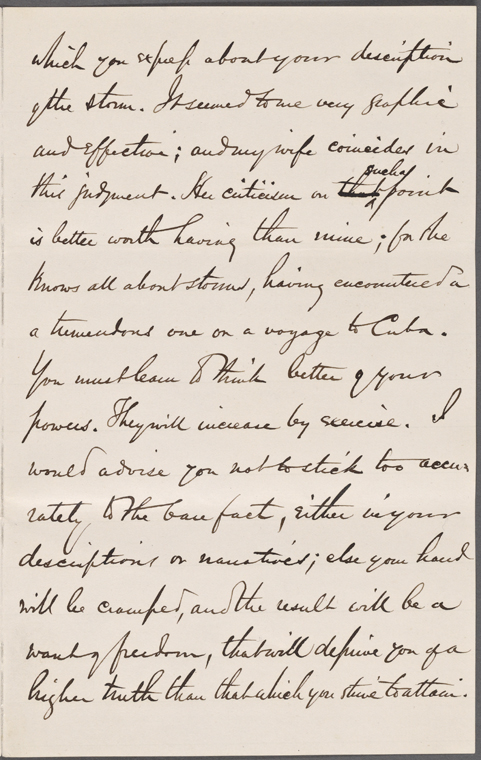 which you express about your description
of the storm. It seemed to me very graphic
and effective; and my wife coincides in
this judgment. Her criticism on that such a point
is better worth having than mine; for she
knows all about storms, having encountered a
a tremendous one on a voyage to Cuba.
You must learn to think better of your
powers. They will increase by exercise. I
would advise you not to stick too accu=
rately to the bare fact, either in your
descriptions or narratives; else your hand
will be cramped, and the result will be a
want of freedom, that will deprive you of a
higher truth than that which you strive to attain.